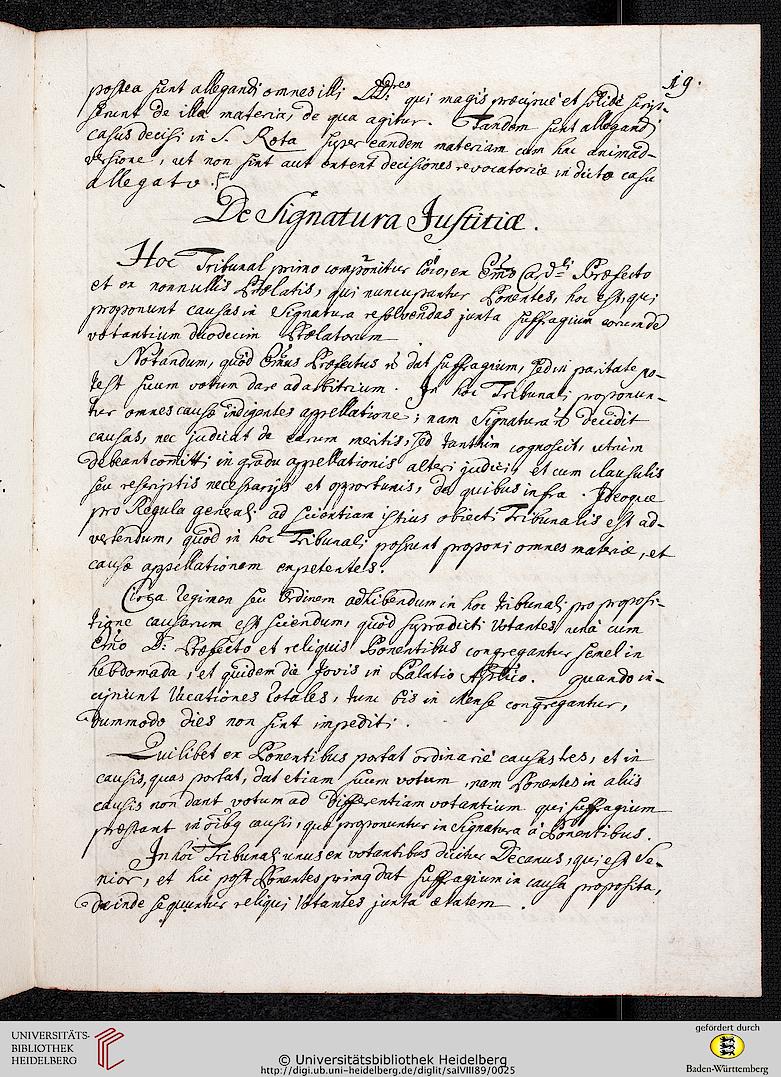 19.
postea sunt allegandi omnes illi DD.res qui magis præcipuè et solidè scrips-
serunt de illa materia, de qua agitur. Tandem sunt allegandi
casus decisi in S. Rota super eandem materiam cum hac animad-
versione, ut non sint aut extent decisiones revocatoriæ in dicto casu
allegato.
De Signatura Justitiæ.
Hoc Tribunal primo componitur ex Emo Card.li Præfecto
et ex nonnullis Prælatis, qui nuncupantur Ponentes, hoc est, qui
proponunt causas in Signatura resolvendas juxta suffragium eorumde
votantium duodecim Prælatorum
Notandum, quòd Emus Præfectus ñ dat suffragium, sed in paritate po-
test suum votum dare ad arbitrium. In hoc Tribunali proponun-
tur omnes causæ indigentes appellatione; nam Signatura ñ decidit
causas, nec judicat de earum meritis, sed tantùm cognoscit, utrùm
debeant com̃itti in gradu appellationis alteri judici, et cum clausulis
seu rescriptis necessarijs et opportunis, de quibus infra. Ideoque
pro Regula generali ad scientiam istius obiecti Tribunalis est ad-
vertendum, quòd in hoc Tribunali possunt proponi omnes materiæ, et
causæ appellationem expetentes.
Circa regimen seu ordinem adhibendum in hoc tribunali pro proposi-
tione causarum est sciendum, quòd supradicti Votantes unà cum
Emo D: Præfecto et reliquis Ponentibus congregantur semel in
hebdomada, et quidem die Jovis in Palatio Aplico. Quando in-
cipiunt Vacationes Rotales, tunc bis in Mense congregantur,
dummodo dies non sint impediti.
Quilibet ex Ponentibus portat ordinariè causas tres, et in
causis, quas portat, dat etiam suum votum, nam Ponentes in aliis
causis non dant votum ad differentiam votantium qui suffragium
præstant in õibq causis, quæ proponuntur in Signatura à Ponentibus.
In hoc Tribunali unus ex votantibus dicitur Decanus, qui est Se-
nior, et hic post Ponentes primq dat suffragium in causa proposita,
deinde sequuntur reliqui Votantes juxta ætatem.
UNIVERSITÄTS-
BIBLIOTHEK
HEIDELBERG
© Universitätsbibliothek Heidelberg
http://digi.ub.uni-heidelberg.de/diglit/salVIII89/0025
gefördert durch
Baden-Württemberg